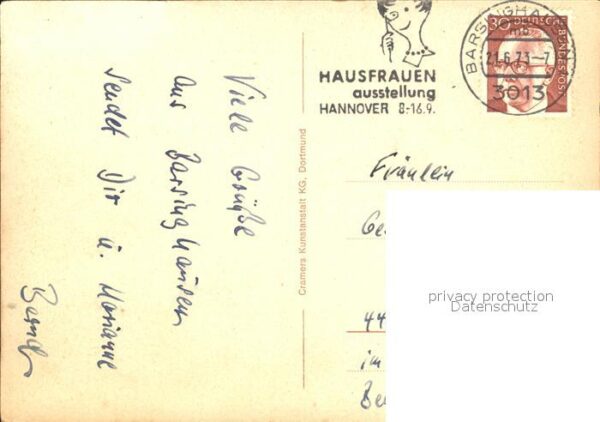 Viele Grüße
aus Barsinghausen
sendet Dir u. Marianne
Bernd
Cramers Kunstanstalt KG, Dortmund
HAUSFRAUEN
ausstellung
HANNOVER 8.-16.9.
BARSINGHAUSEN
mb
21.6.73-7
3013
30
DEUTSCHE BUNDESPOST
Fräulein
Ge
44
im
Be
privacy protection
Datenschutz